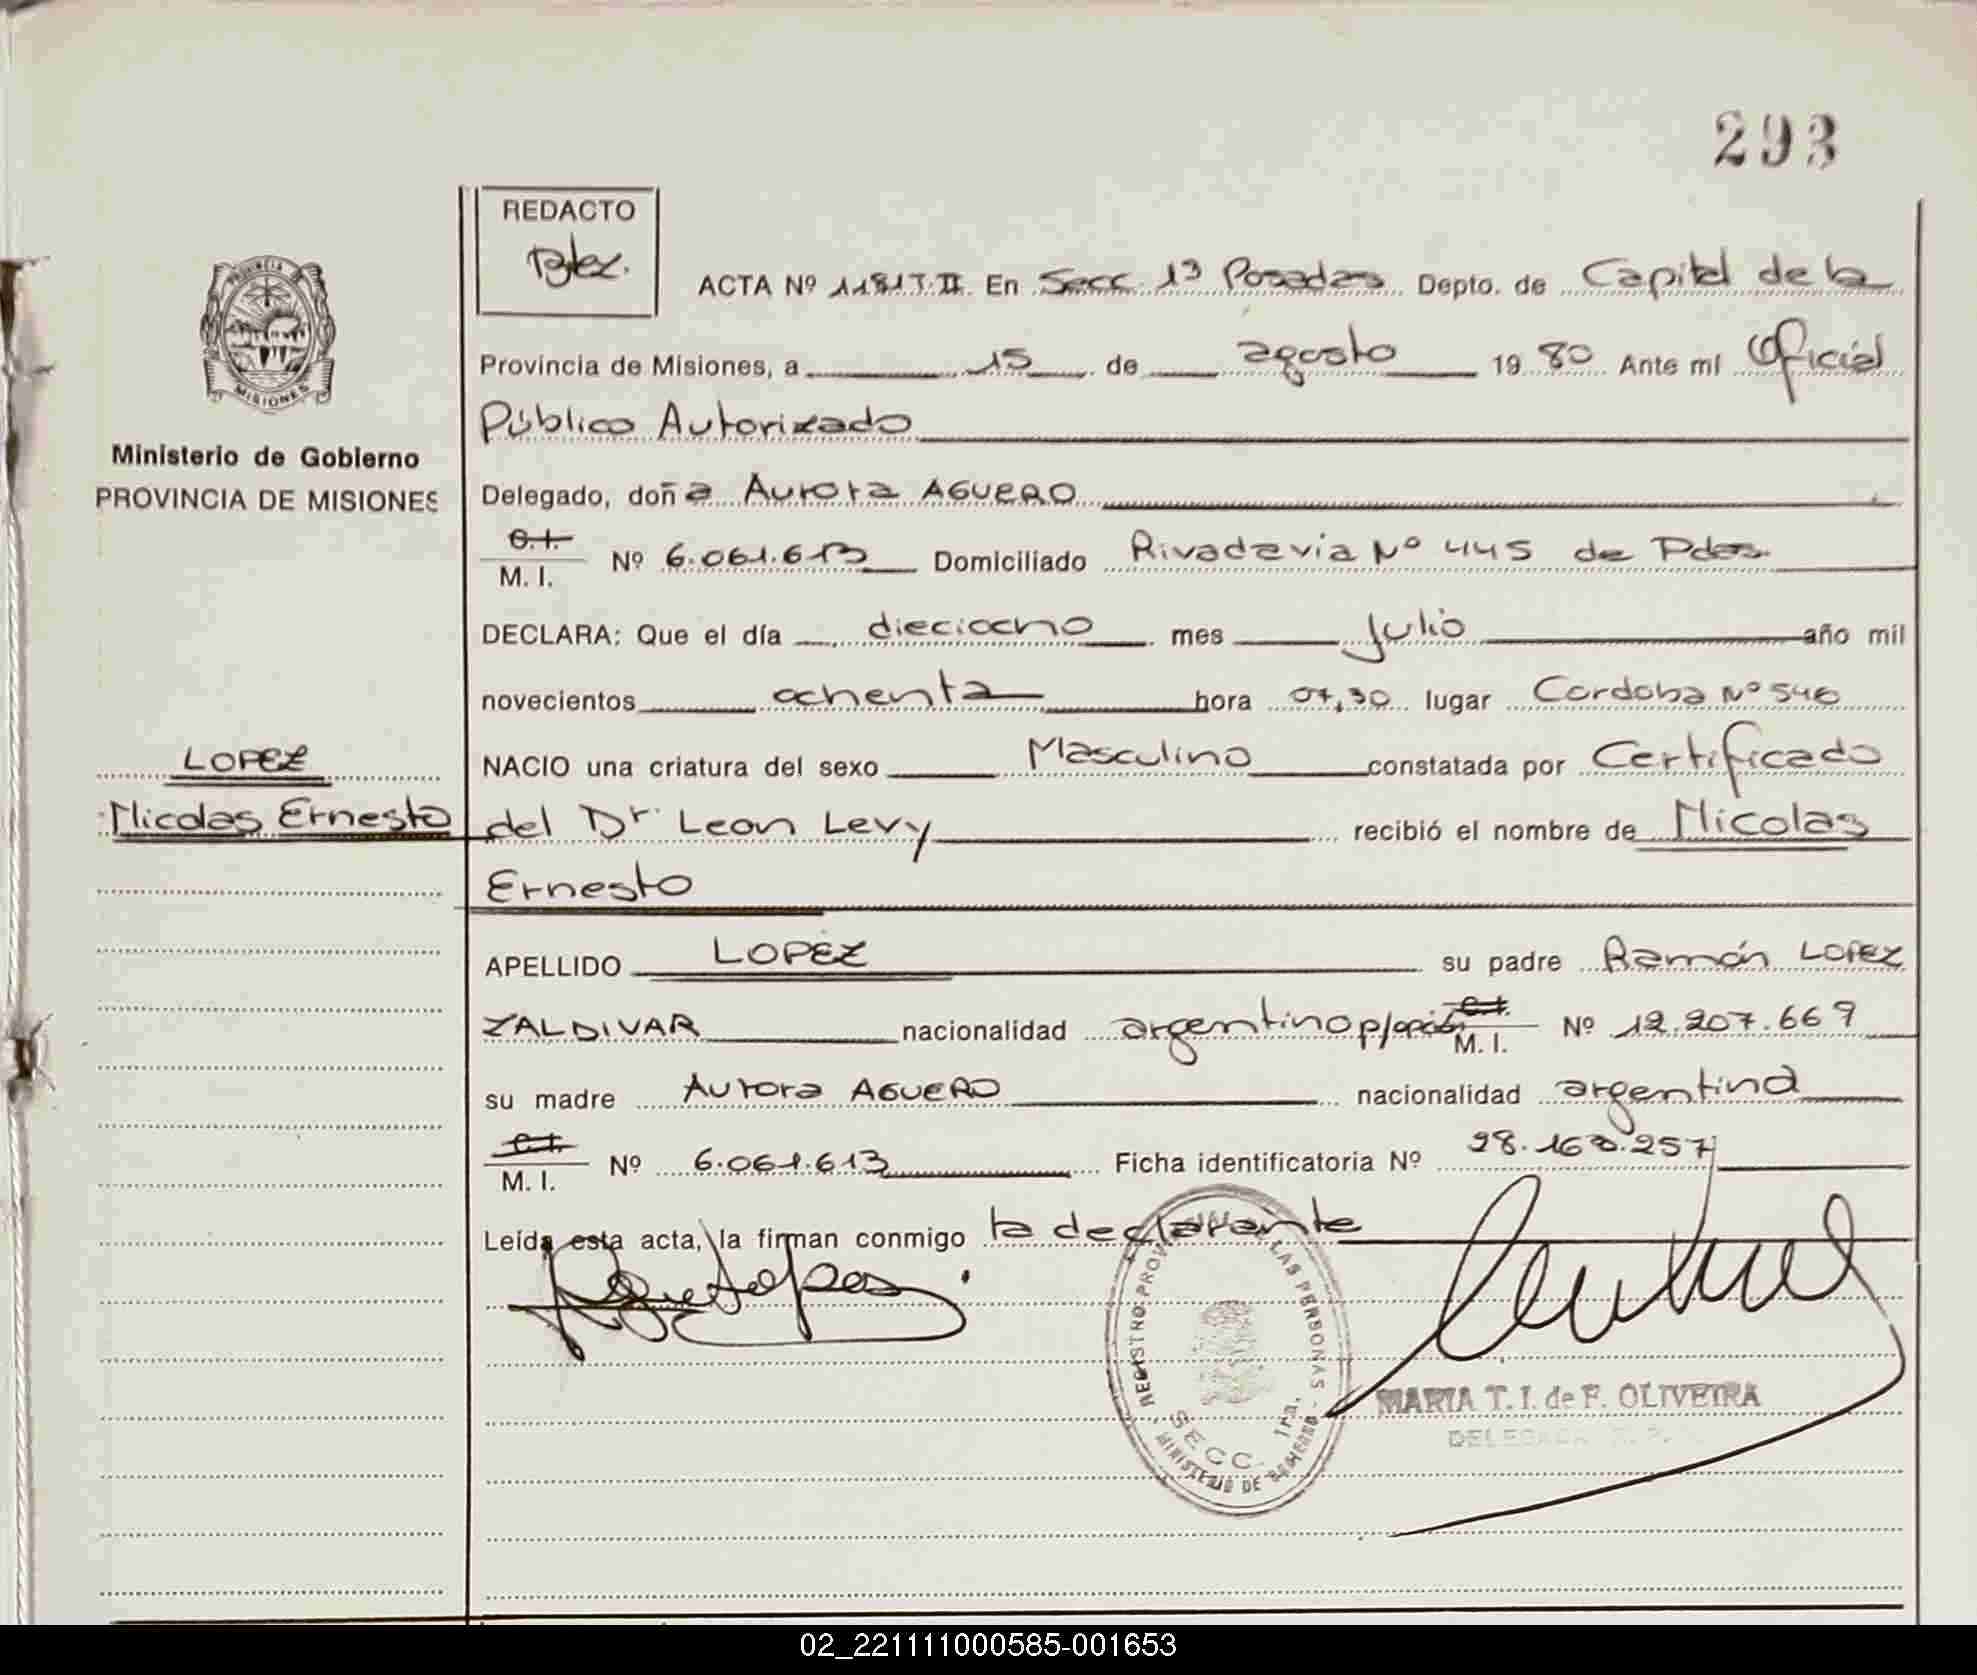 293
REDACTO
PROVINCIA DE
MISIONES
ACTA Nº 1181 T. II. En Secc. 1ª Posadas Depto. de Capital de la
Provincia de Misiones, a 15 de agosto 19 80 Ante mí Oficial
Público Autorizado
Ministerio de Gobierno
PROVINCIA DE MISIONES
Delegado, doña Aurora AGUERO
C.I. M. I. Nº 6.061.613 Domiciliado Rivadavia Nº 445 de Pdas.
DECLARA: Que el día dieciocho mes julio año mil
novecientos ochenta hora 07,30 lugar Cordoba Nº 546
LOPEZ
Nicolas Ernesto
NACIO una criatura del sexo Masculino constatada por Certificado
del Dr. Leon Levy recibió el nombre de Nicolas
Ernesto
APELLIDO LOPEZ su padre Ramón LOPEZ
ZALDIVAR nacionalidad argentino p/opción C.I. M. I. Nº 12.207.669
su madre Aurora AGUERO nacionalidad argentina
C.I. M. I. Nº 6.061.613 Ficha identificatoria Nº 28.160.257
Leída esta acta, la firman conmigo la declarante
REGISTRO PROV LAS PERSONAS
SECC. 1ra.
MINISTERIO DE GOBIERNO
MARIA T. I. de F. OLIVEIRA
02_221111000585-001653